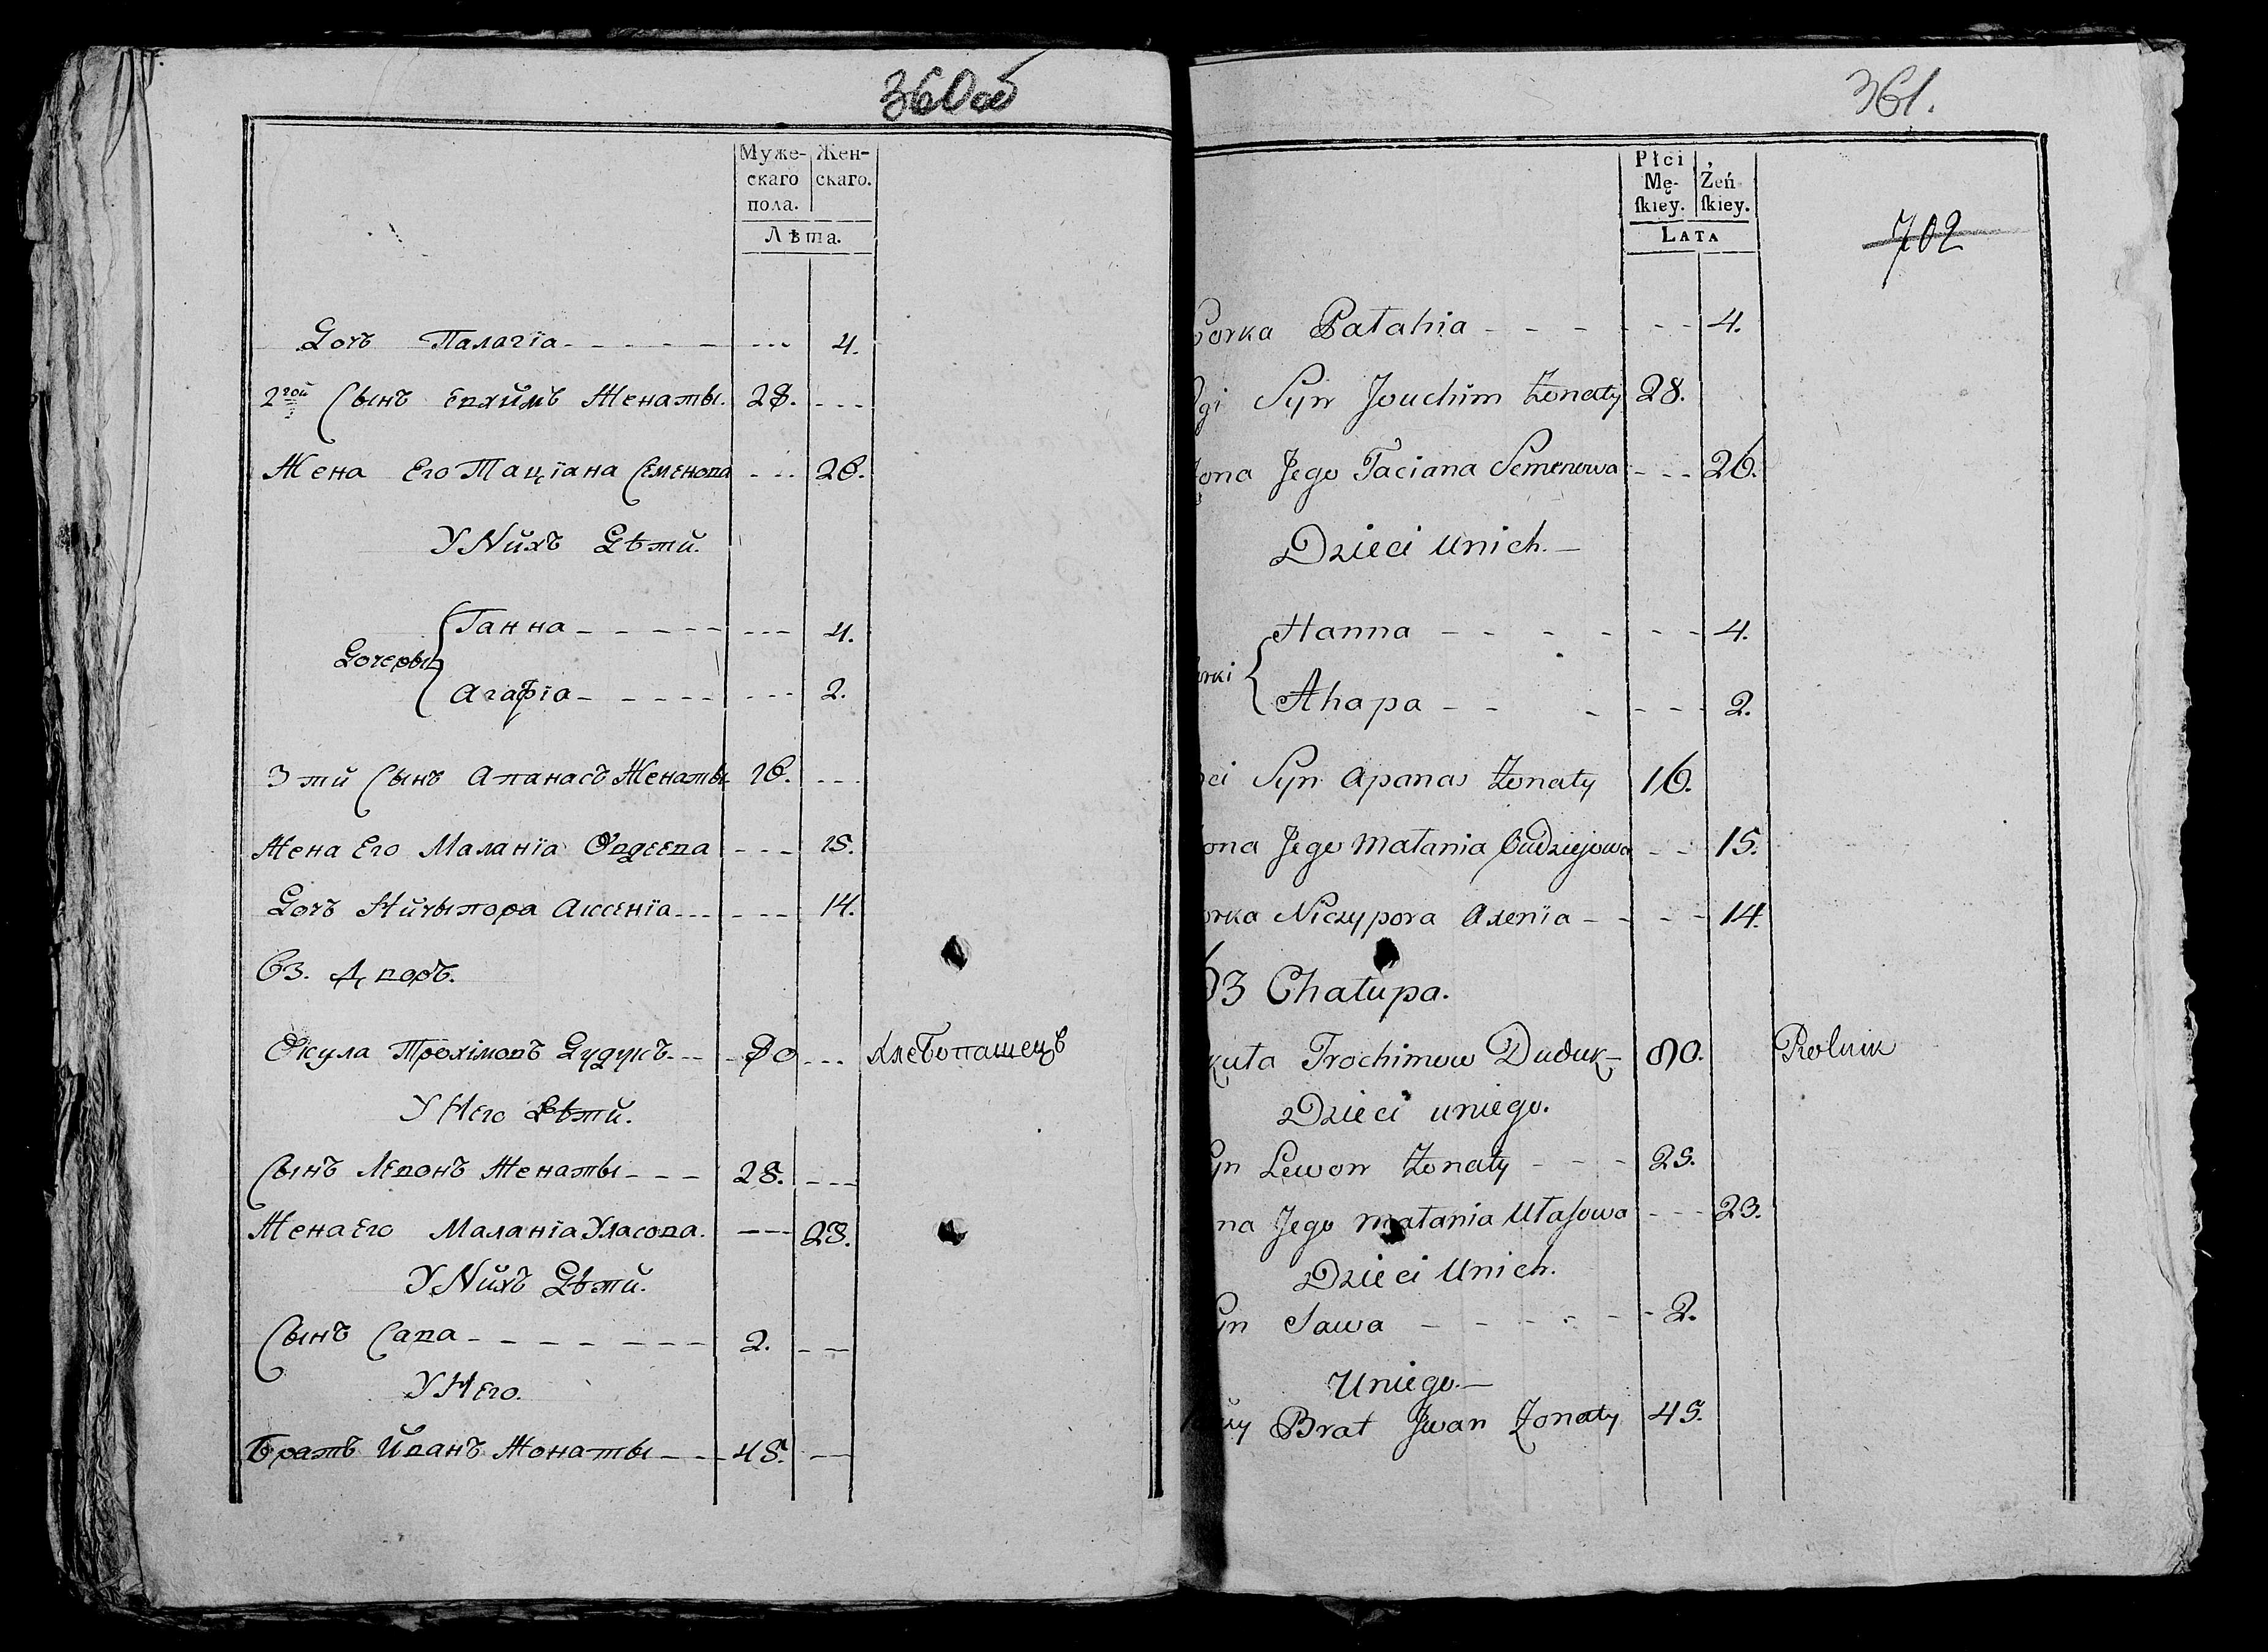 360об
Муже- Жен-
скаго скаго.
пола.
Лѣта.
Дочъ Палагїа - - - - - - - - 4.
2гой Сынъ Евхимъ Женаты. 28. - - -
Жена Его Тацїана Семенова - - - 26.
У Нихъ Дѣти.
Ганна - - - - - - - - 4.
Дочеры
Агафїа - - - - - - - - 2.
3 тй Сынъ Апанасъ Женаты 16. - - -
Жена Его Маланїа Овдеева - - - 15.
Дочъ Ничыпора Аксенїа - - - - - - 14.
63. Дворъ.
Окула Трохімовъ Дудукъ - - - 80 - - - хлебопашецъ
У Него Дѣти.
Сынъ Левонъ Женаты - - - 25. - - -
Жена Его Маланїа Уласова. - - - 23.
У Нихъ Дѣти.
Сынъ Сава - - - - - - - 2. - - -
У Него.
Братъ Иванъ Жонаты - - - 45. - - -
361.
Płci
Mę- Żeń
skiey. skiey.
LATA
702
Corka Pałahia - - - - - - 4.
gi Syn Jouchim Żonaty 28.
żona Jego Taciana Semenowa - - - 26.
Dzieci Unich. -
Hanna - - - - - - - 4.
orki
Ahapa - - - - - - 2.
ci Syn Apanas Żonaty 16.
ona Jego Małania Audziejowa - - 15.
orka Niczypora Axenïa - - - - 14.
63 Chałupa.
kuła Trochimow Duduk - 80. Rolnik
Dzieci uniego.
yn Lewon Żonaty - - - 25.
na Jego Małania Ułasowa - - - 23.
Dzieci Unich.
yn Sawa - - - - - - 2.
Uniego. -
Brat Jwan Żonaty 45.